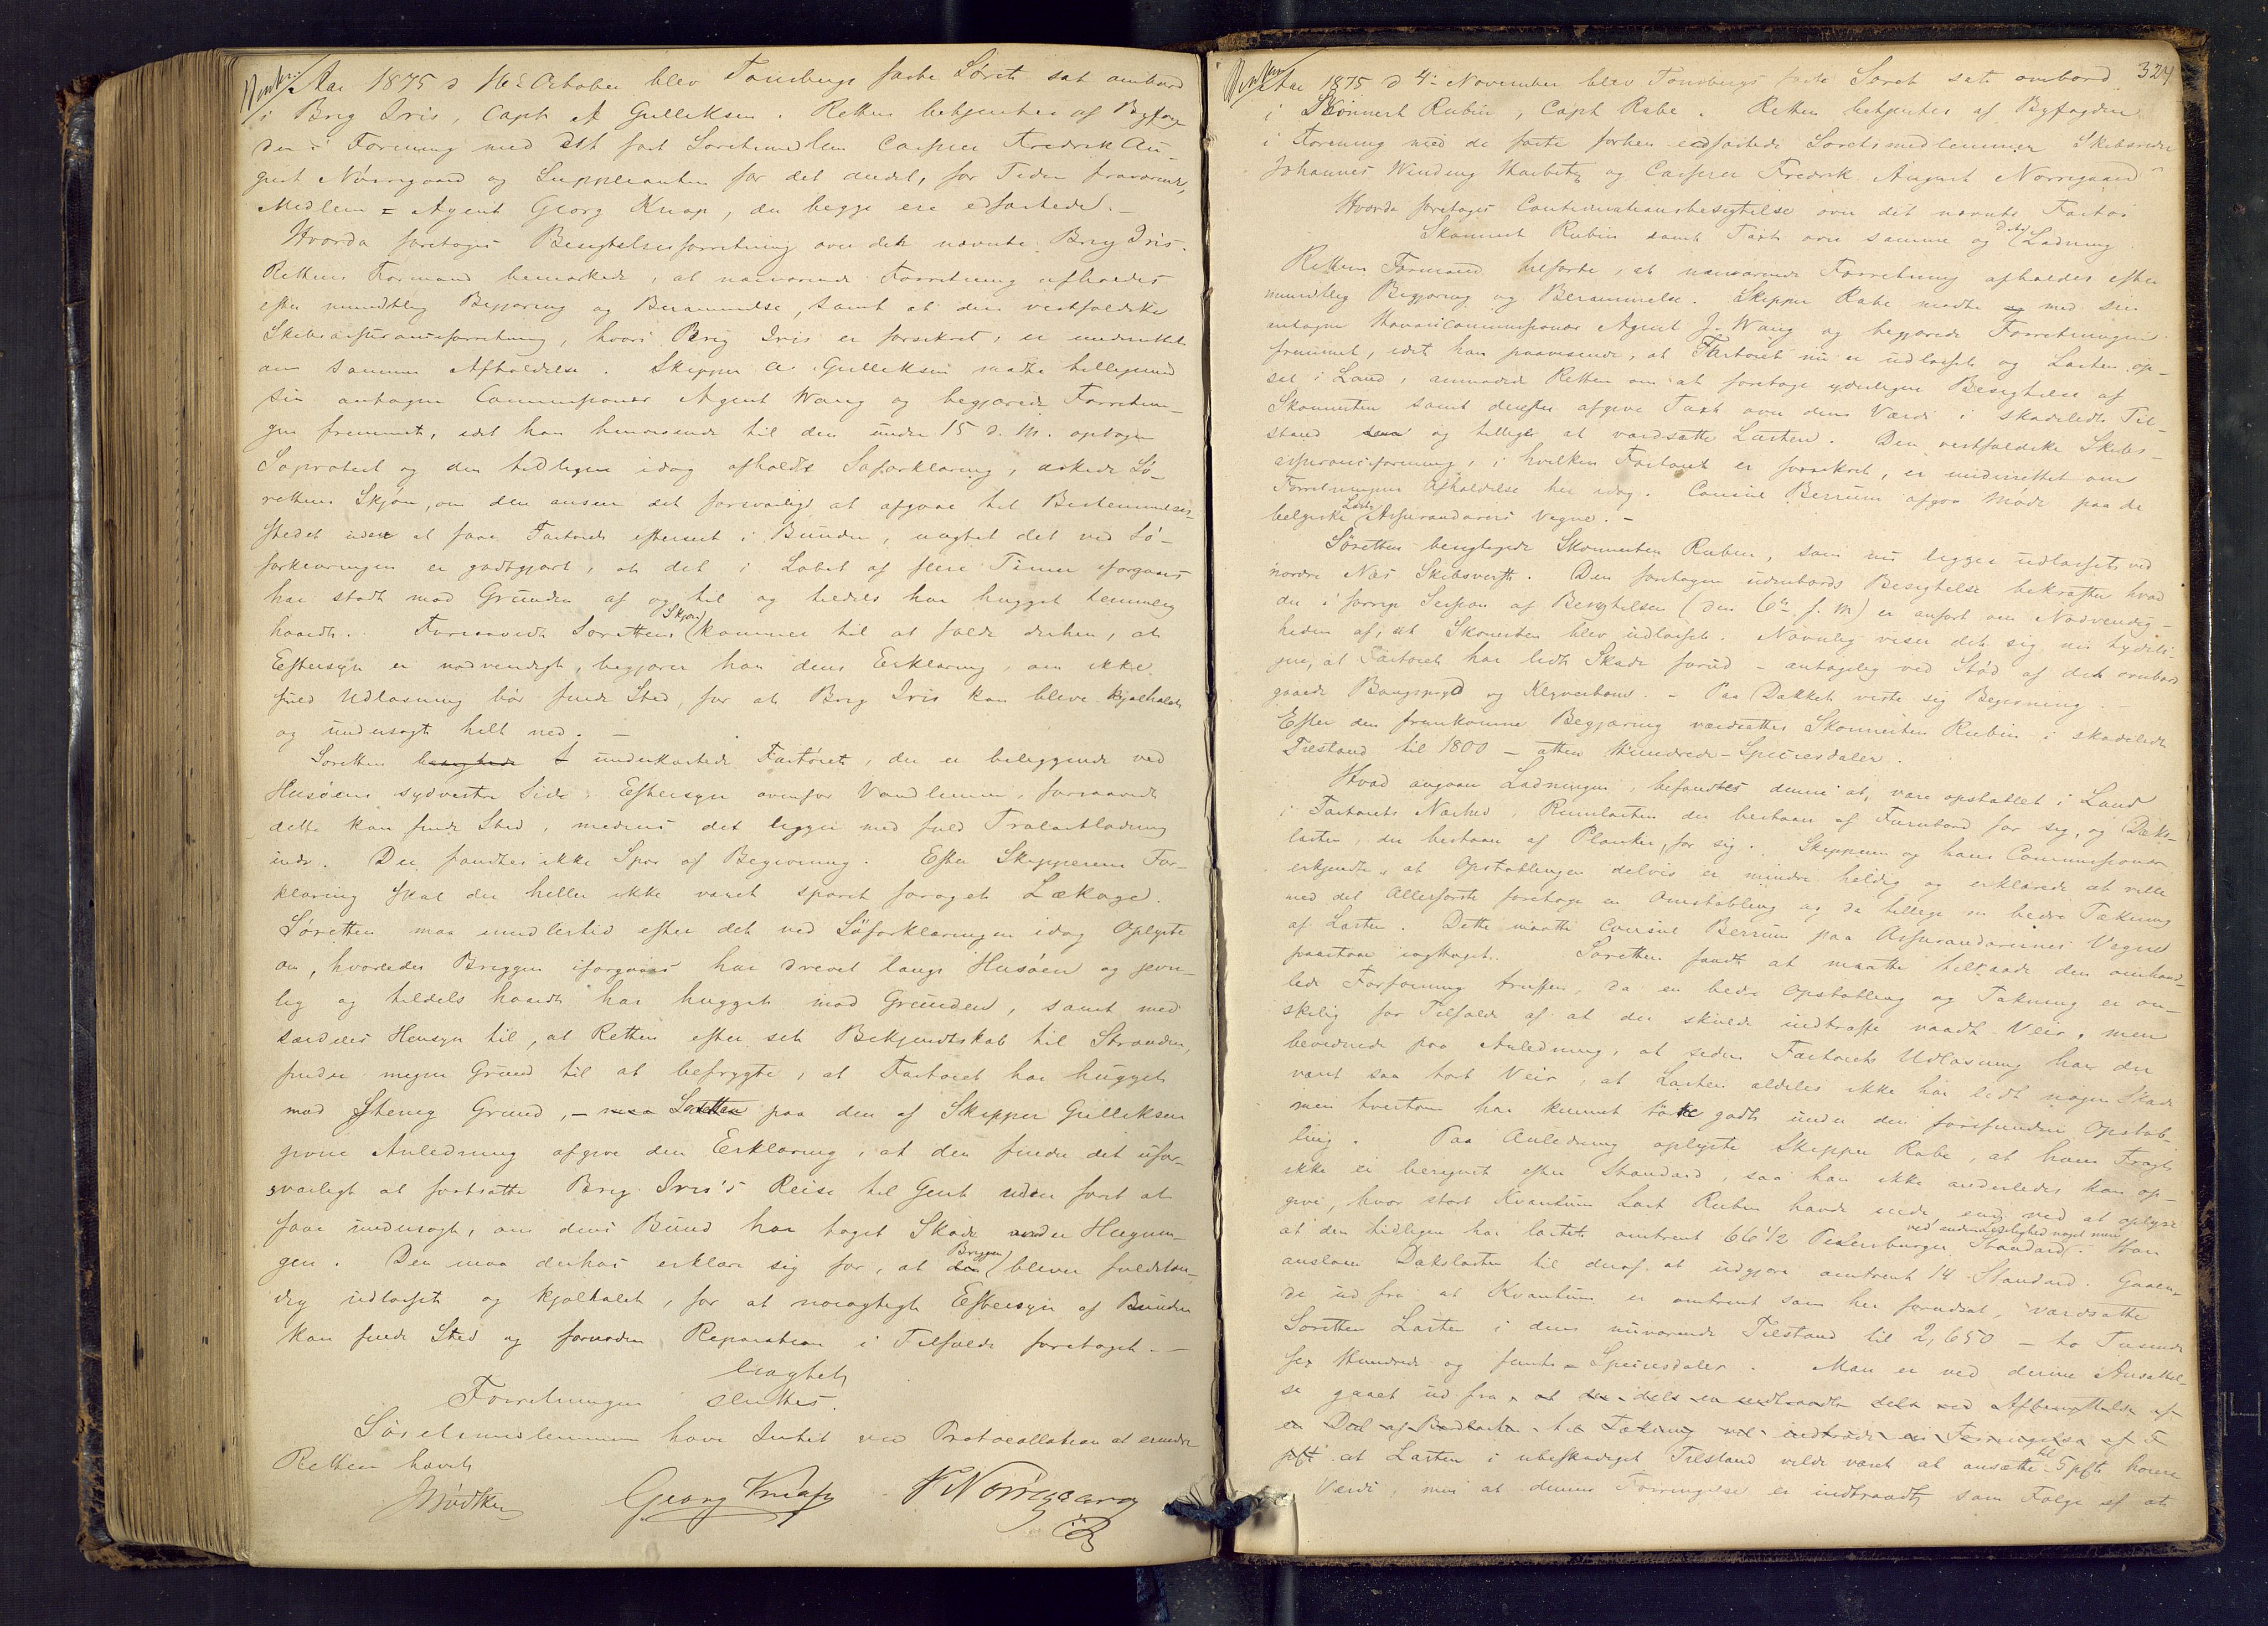 Aar 1875 d 16de October blev Tønsbergs faste Søret sat ombord
i Brig Iris, Capt A Gulliksen. Retten betjentes af Byfog-
den i Forening med Det fast Søretsmedlem Casper Fredrik Au-
gust Nørregaard og Suppleanten for det andet, for Tiden fraværende,
Medlem = Agent Georg Knap, der begge ere edfæstede. -
Hvorda foretoges Besigtelsesforretning over det nævnte Brig Iris.
Rettens Formand bemærkede, at nærværende Forretning afholdes
efter mundtlig Begjæring og Berammelse, samt at den vestfoldske
Skibsassuranceforretning, hvori Brig Iris er forsikret, er underrettet
om sammes Afholdelse. Skipper A. Gulliksen mødte tilligemed
sin antagne Commissionær Agent Wang og begjærede Forretnin-
gen fremmet, idet han henvisende til den under 15 d. M. optagne
Søprotest og den tidligere idag afholdte Søforklaring, æskede Sø-
rettens Skjøn, om den ansee det forsvarligt at afgaae til Bestemmelses-
stedet uden at faae Fartøiets efterseet i Bunden, uagtet det ved Sø-
forklaringen er godtgjort, at det i Løbet af flere Timer iforgaars
har stødt mod Grunden af og til og tildels har hugget temmelig
haardt. Forsaavidt Sørettens (Skjøn) kommer til at falde derhen, at
Eftersyn er nødvendigt, begjærer han dens Erklæring, om ikke
fuld Udlosning bør finde Sted, for at Brig Iris kan blive kjølhalet
og undersøgt helt ned. -
Søretten besigtede & underkastede Fartøiet, der er beliggende ved
Husøens sydvestre Side, Eftersyn ovenfor Vandlinien, forsaavidt
dette kan finde Sted, medens det ligger med fuld Trælastladning
inde. Der fandtes ikke Spor af Begivning. Efter Skipperens For-
klaring skal der heller ikke været sporet forøget Lækage.
Søretten maa imidlertid efter det ved Søforklaringen idag Oplyste
om, hvorledes Briggen iforgaars har drevet langs Husøen og jevn-
lig og tildels haardt har hugget mod Grunden, samt med
særdeles Hensyn til, at Retten efter sit Bekjendtskab til Stranden,
finder megen Grund til at befrygte, at Fartøiet har hugget
mod stenig Grund, - maa Søretten paa den af Skipper Gulliksen
givne Anledning afgive den Erklæring, at den finder det ufor-
svarligt at fortsætte Brig Iris's Reise til Gent uden først at
faae undersøgt, om dens Bund har taget Skade under Hugnin-
gen. Den maa derhos erklære sig for, at den (Briggen) bliver fuldstæn-
dig udlosset og kjølhalet, for at nøiagtigt Eftersyn af Bunden
kan finde Sted og fornøden Reparation i Tilfælde foretaget. -
Forretningen sluttes.
Søretsmedlemmerne have Intet ved Protocollationen at erindre
Retten hævet
Bødtker Georg Knap F Nørregaard
324
Aar 1875 d 4de November blev Tønsbergs faste Søret sat ombord
i Skonnert Rubin, Capt Rabe. Retten betjentes af Byfogden
i Forening med de faste forhen edfæstede Søretsmedlemmer Skibsreder
Johannes Winding Harbitz og Casper Fredrik August Nørregaard
Hvorda foretoges Continuationsbesigtelse over det nævnte Fartøi
Skonnert Rubin samt Taxt over samme og dets Ladning.
Rettens Formand tilførte, at nærværende Forretning afholdes efter
mundtlig Begjæring og Berammelse. Skipper Rabe mødte og med sin
antagne Havaricommissionær Agent J. Wang og begjærede Forretningen
fremmet, idet han paavisende, at Fartøiet nu er udlosset og Lasten op-
sat i Land, anmodede Retten om at foretage yderligere Besigtelse af
Skonnerten samt derefter afgive Taxt over dens Værdi i skadelidt Til-
stand samt og tillige at værdsætte Lasten. Den vestfoldske Skibs-
assuranceforening, i hvilken Fartøiet er forsikret, er underrettet om
Forretningens Afholdelse her idag. Consul Berrum afgav Møde paa de
belgiske Lasts Assurandørers Vegne. -
Søretten besigtigede Skonnerten Rubin, som nu ligger udlosset ved
nordre Næs Skibsverft. Den foretagne udenbords Besigtelse bekræfter hvad
der i forrige Session af Besigtelsen (den 6te f. M) er anført om Nødvendig-
heden af, at Skonnerten blev udlosset. Navnlig viser det sig nu tydeli-
gere, at Fartøiet har lidt Skade forud - antagelig ved Stød af det ombord
gaaede Bougspryd og Klyverbom. - Paa Dækket viste sig Begivning. -
Efter den fremkomne Begjæring værdsættes Skonnerten Rubin i skadelidt
Tilstand til 1800 - atten Hundrede - Speciesdaler.
Hvad angaar Ladningen, befandtes denne at være opstablet i Land
i Fartøiets Nærhed, Rumlasten der bestaaer af Furubord for sig, og Dæks-
lasten, der bestaaer af Planker, for sig. Skipperen og hans Commissionær
erkjendte, at Opstablingen delvis er mindre heldig og erklærede at ville
med det Allerførste foretage en Omstabling og da tillige en bedre Tækning
af Lasten. Dette maatte Consul Berrum paa Assurandørernes Vegne
paastaae iagttaget. Søretten fandt at maatte tilraade den omhand-
lede Forføining truffen, da en bedre Opstabling og Tækning er øn-
skelig for Tilfælde af at der skulde indtræffe vaadt Veir, men
bevidnede paa Anledning, at siden Fartøiets Udlosning har der
været saa tørt Veir, at Lasten aldeles ikke har lidt nogen Skade
men tvertom har kunnet tørke godt under den forefundne Opstab-
ling. Paa Anledning oplyste Skipper Rabe, at hans Fragt
ikke er beregnet efter Standard, saa han ikke anderledes kan op-
give, hvor stort Kvantum Last Rubin havde inde, end ved at oplyse
at den tidligere har lastet omtrent 66 1/2 Petersburger Standard. Han
anslaaer Dækslasten til deraf at udgjøre omtrent 14 Standard. Gaaen-
de ud fra at Kvantum er omtrent som her forudsat, værdsatte
Søretten Lasten i dens nuværende Tilstand til 2,650 - to Tusinde
sex Hundrede og femti - Speciesdaler. Man er ved denne Ansættel-
se gaaet ud fra,
at Lasten i ubeskadiget Tilstand vilde været at ansætte til høiere
Værdi, men at denne Forringelse er indtraadt som Følge af at